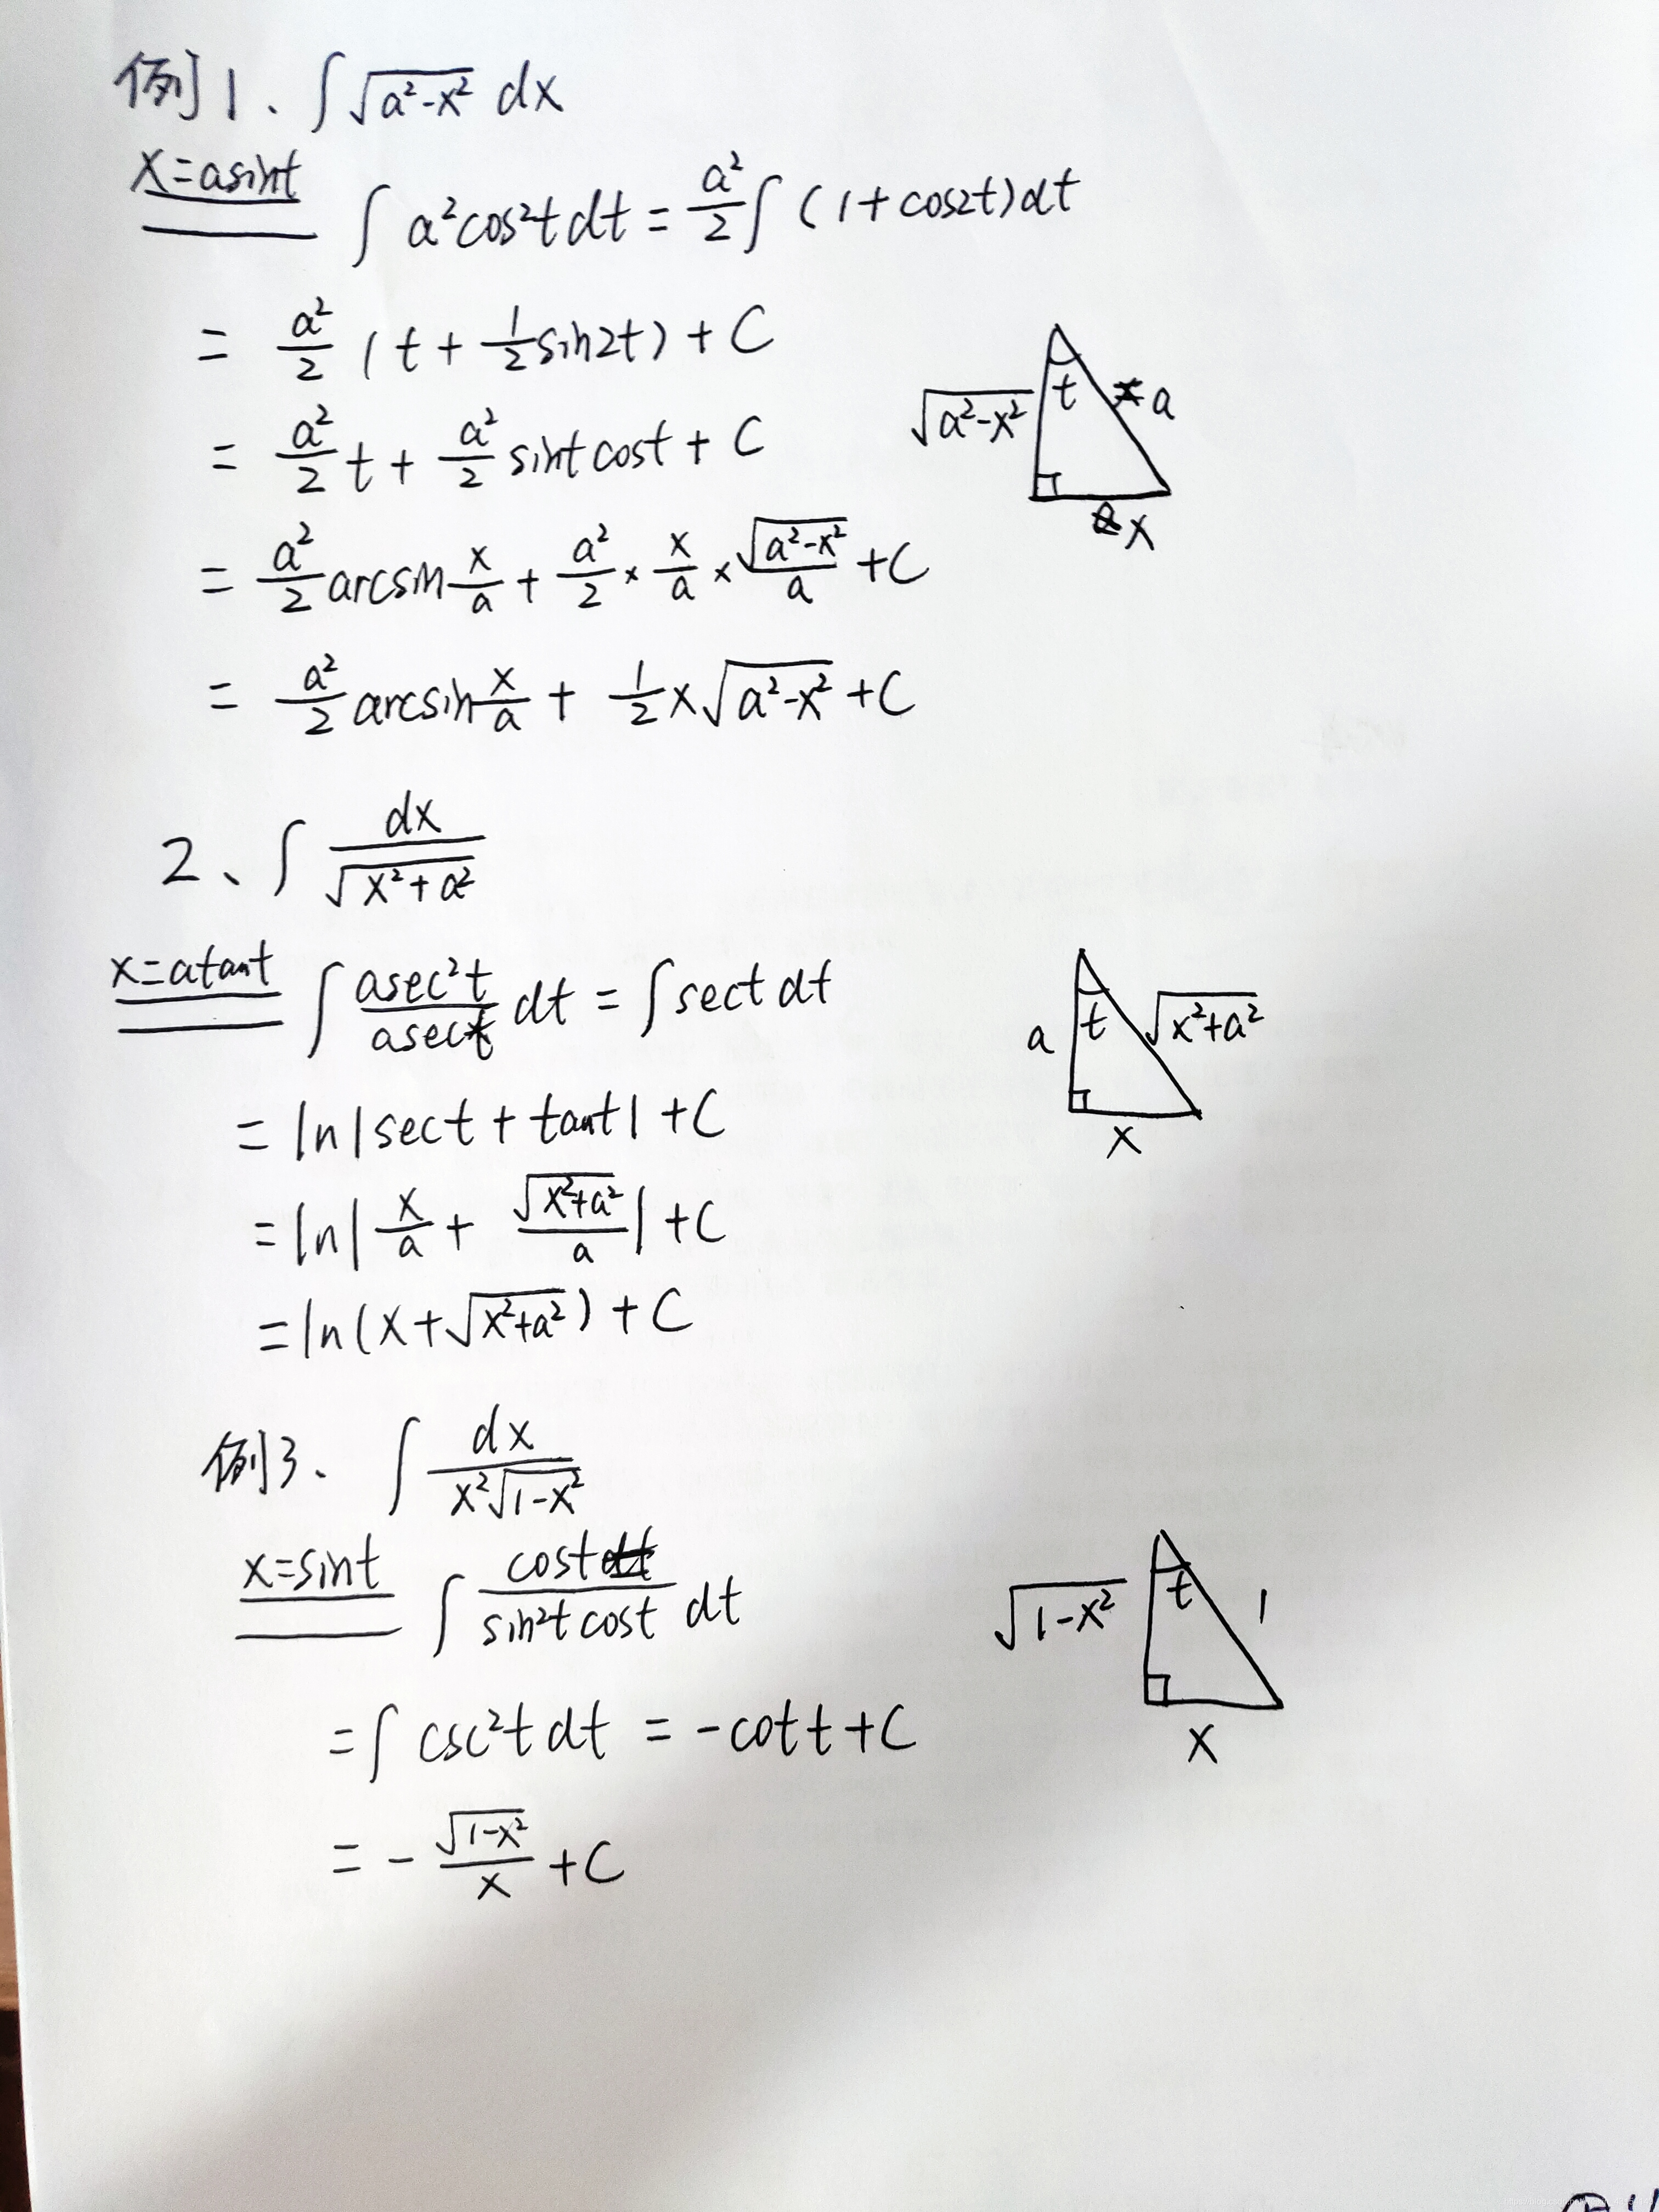 例1、∫√(a²-x²) dx
x=asint
∫a²cos²t dt = a²/2 ∫(1+cos2t)dt
= a²/2 (t + 1/2 sin2t) + C
= a²/2 t + a²/2 sint cost + C
= a²/2 arcsin x/a + a²/2 × x/a × √(a²-x²)/a + C
= a²/2 arcsin x/a + 1/2 x√(a²-x²) + C
√(a²-x²) t a
x
2、∫ dx/√(x²+a²)
x=atant
∫ asec²t/asect dt = ∫sect dt
= ln|sect + tant| + C
= ln|x/a + √(x²+a²)/a| + C
= ln(x+√(x²+a²)) + C
a t √(x²+a²)
x
例3、∫ dx/(x²√(1-x²))
x=sint
∫ cost/(sin²t cost) dt
= ∫csc²t dt = -cott + C
= -√(1-x²)/x + C
√(1-x²) t 1
x